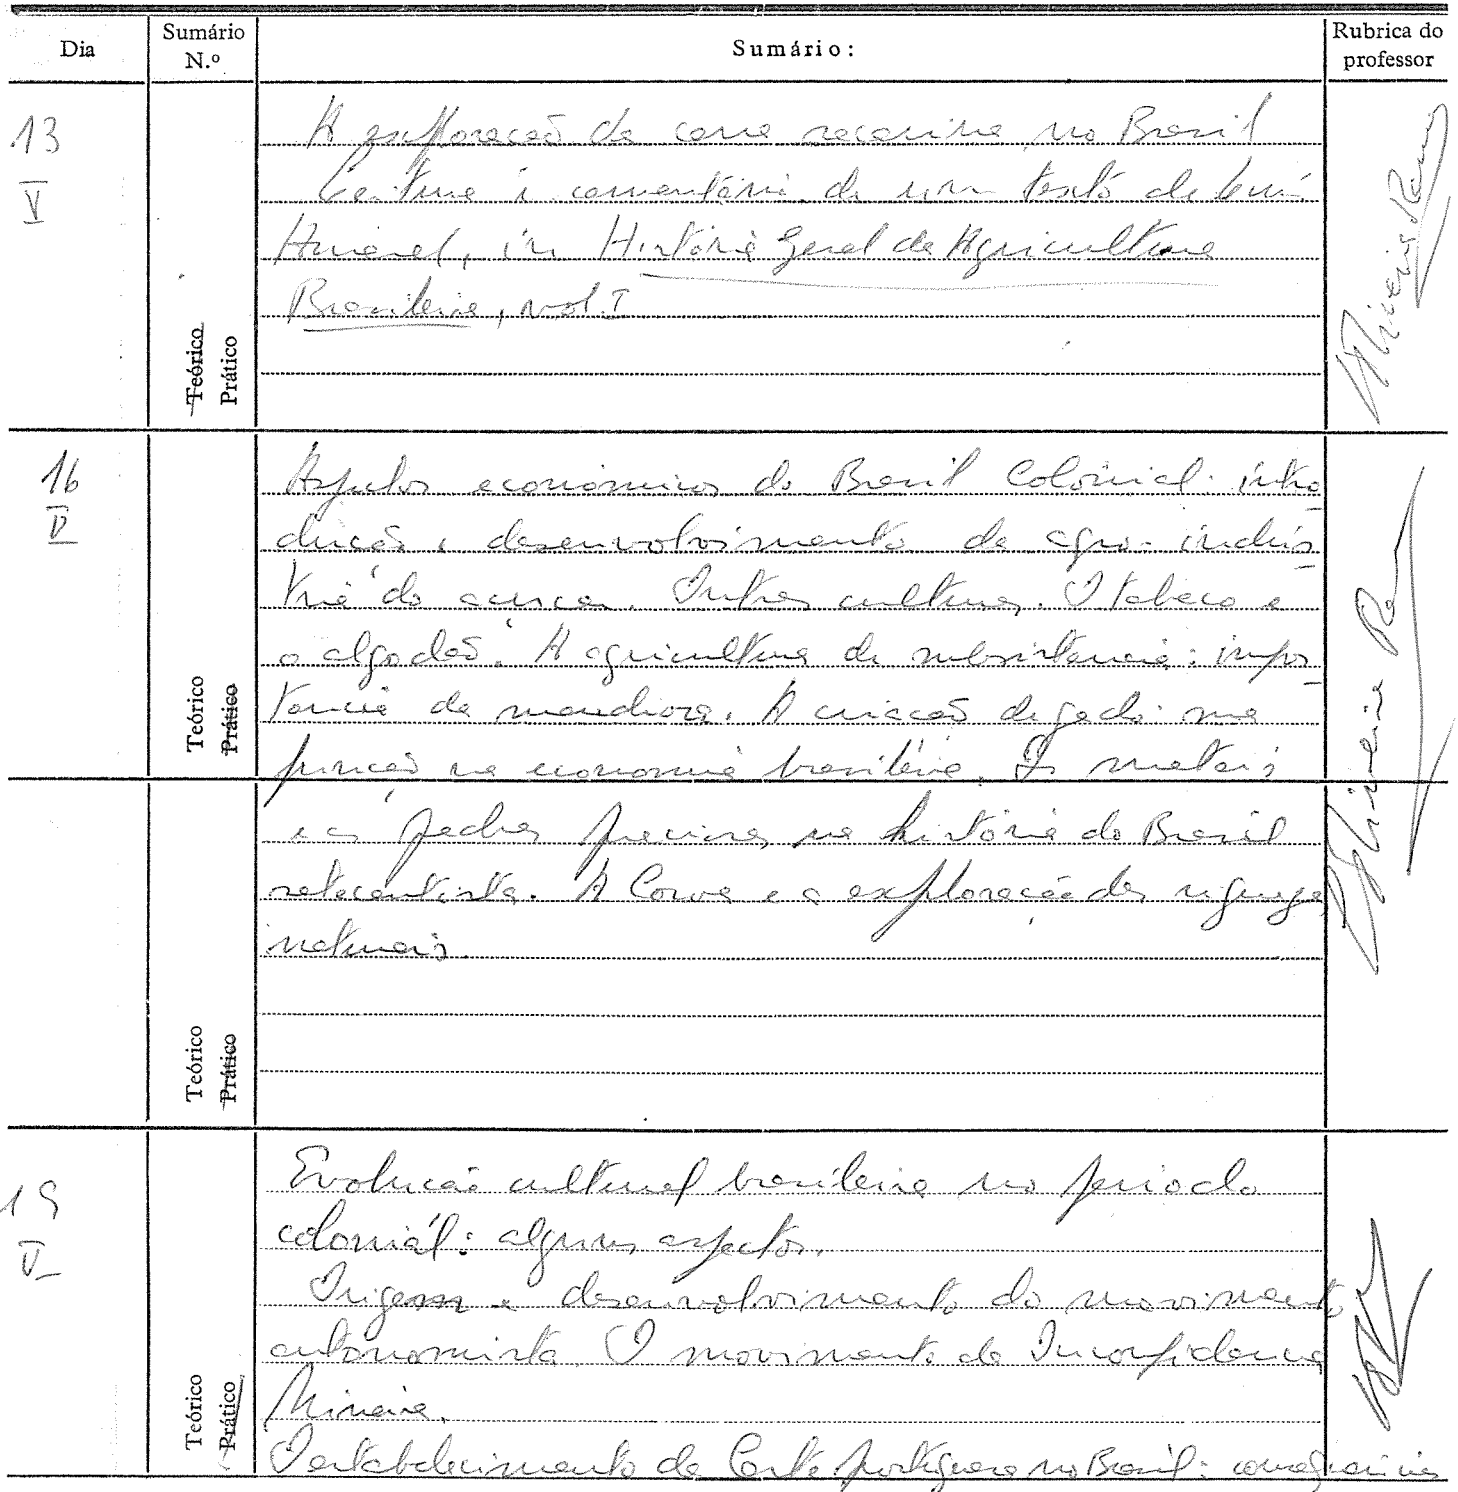 Dia
Sumário N.º
Sumário:
Rubrica do professor
13
V
Teórico
Prático
A exploração da cana sacarina no Brasil
Leitura e comentário de um texto de Luís
Amaral, in História Geral da Agricultura
Brasileira, vol. I
16
V
Teórico
Prático
Aspectos económicos do Brasil Colonial: intro
dução e desenvolvimento da agro-indús
tria do açúcar. Outras culturas. O tabaco e
o algodão. A agricultura de subsistência: impor
tância da mandioca. A criação de gado: sua
função na economia brasileira. Os metais
Teórico
Prático
e as pedras preciosas na história do Brasil
setecentista. A Coroa e a exploração das riquezas
naturais.
19
V
Teórico
Prático
Evolução cultural brasileira no período
colonial: alguns aspectos.
Origem e desenvolvimento do movimento
autonomista. O movimento da Inconfidência
Mineira.
O estabelecimento da Corte portuguesa no Brasil: consequências